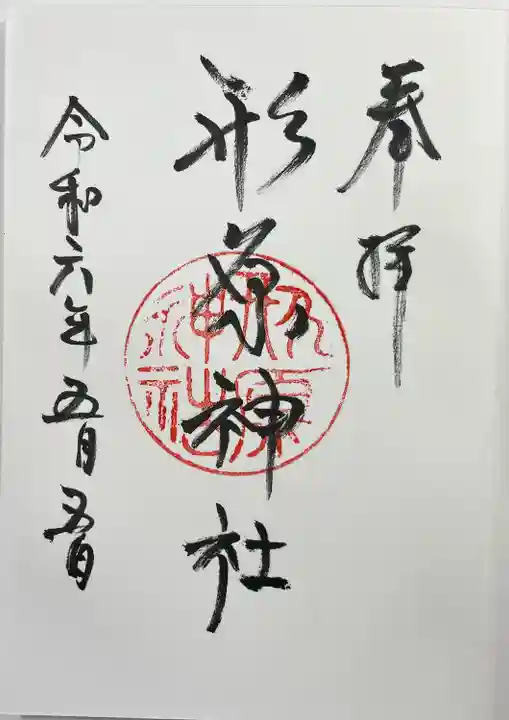 奉拝
形原神社
形原神社
令和六年五月五日